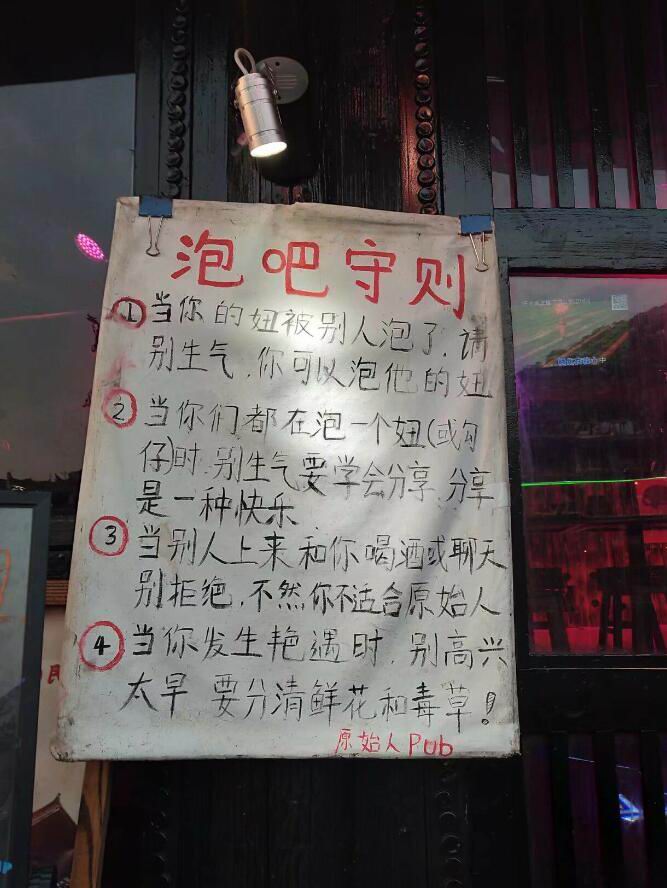 泡吧守则
①当你的妞被别人泡了,请
别生气,你可以泡他的妞
②当你们都在泡一个妞(或勾
仔)时,别生气要学会分享,分享
是一种快乐
③当别人上来和你喝酒或聊天
别拒绝,不然你不适合原始人
④当你发生艳遇时,别高兴
太早 要分清鲜花和毒草!
原始人Pub